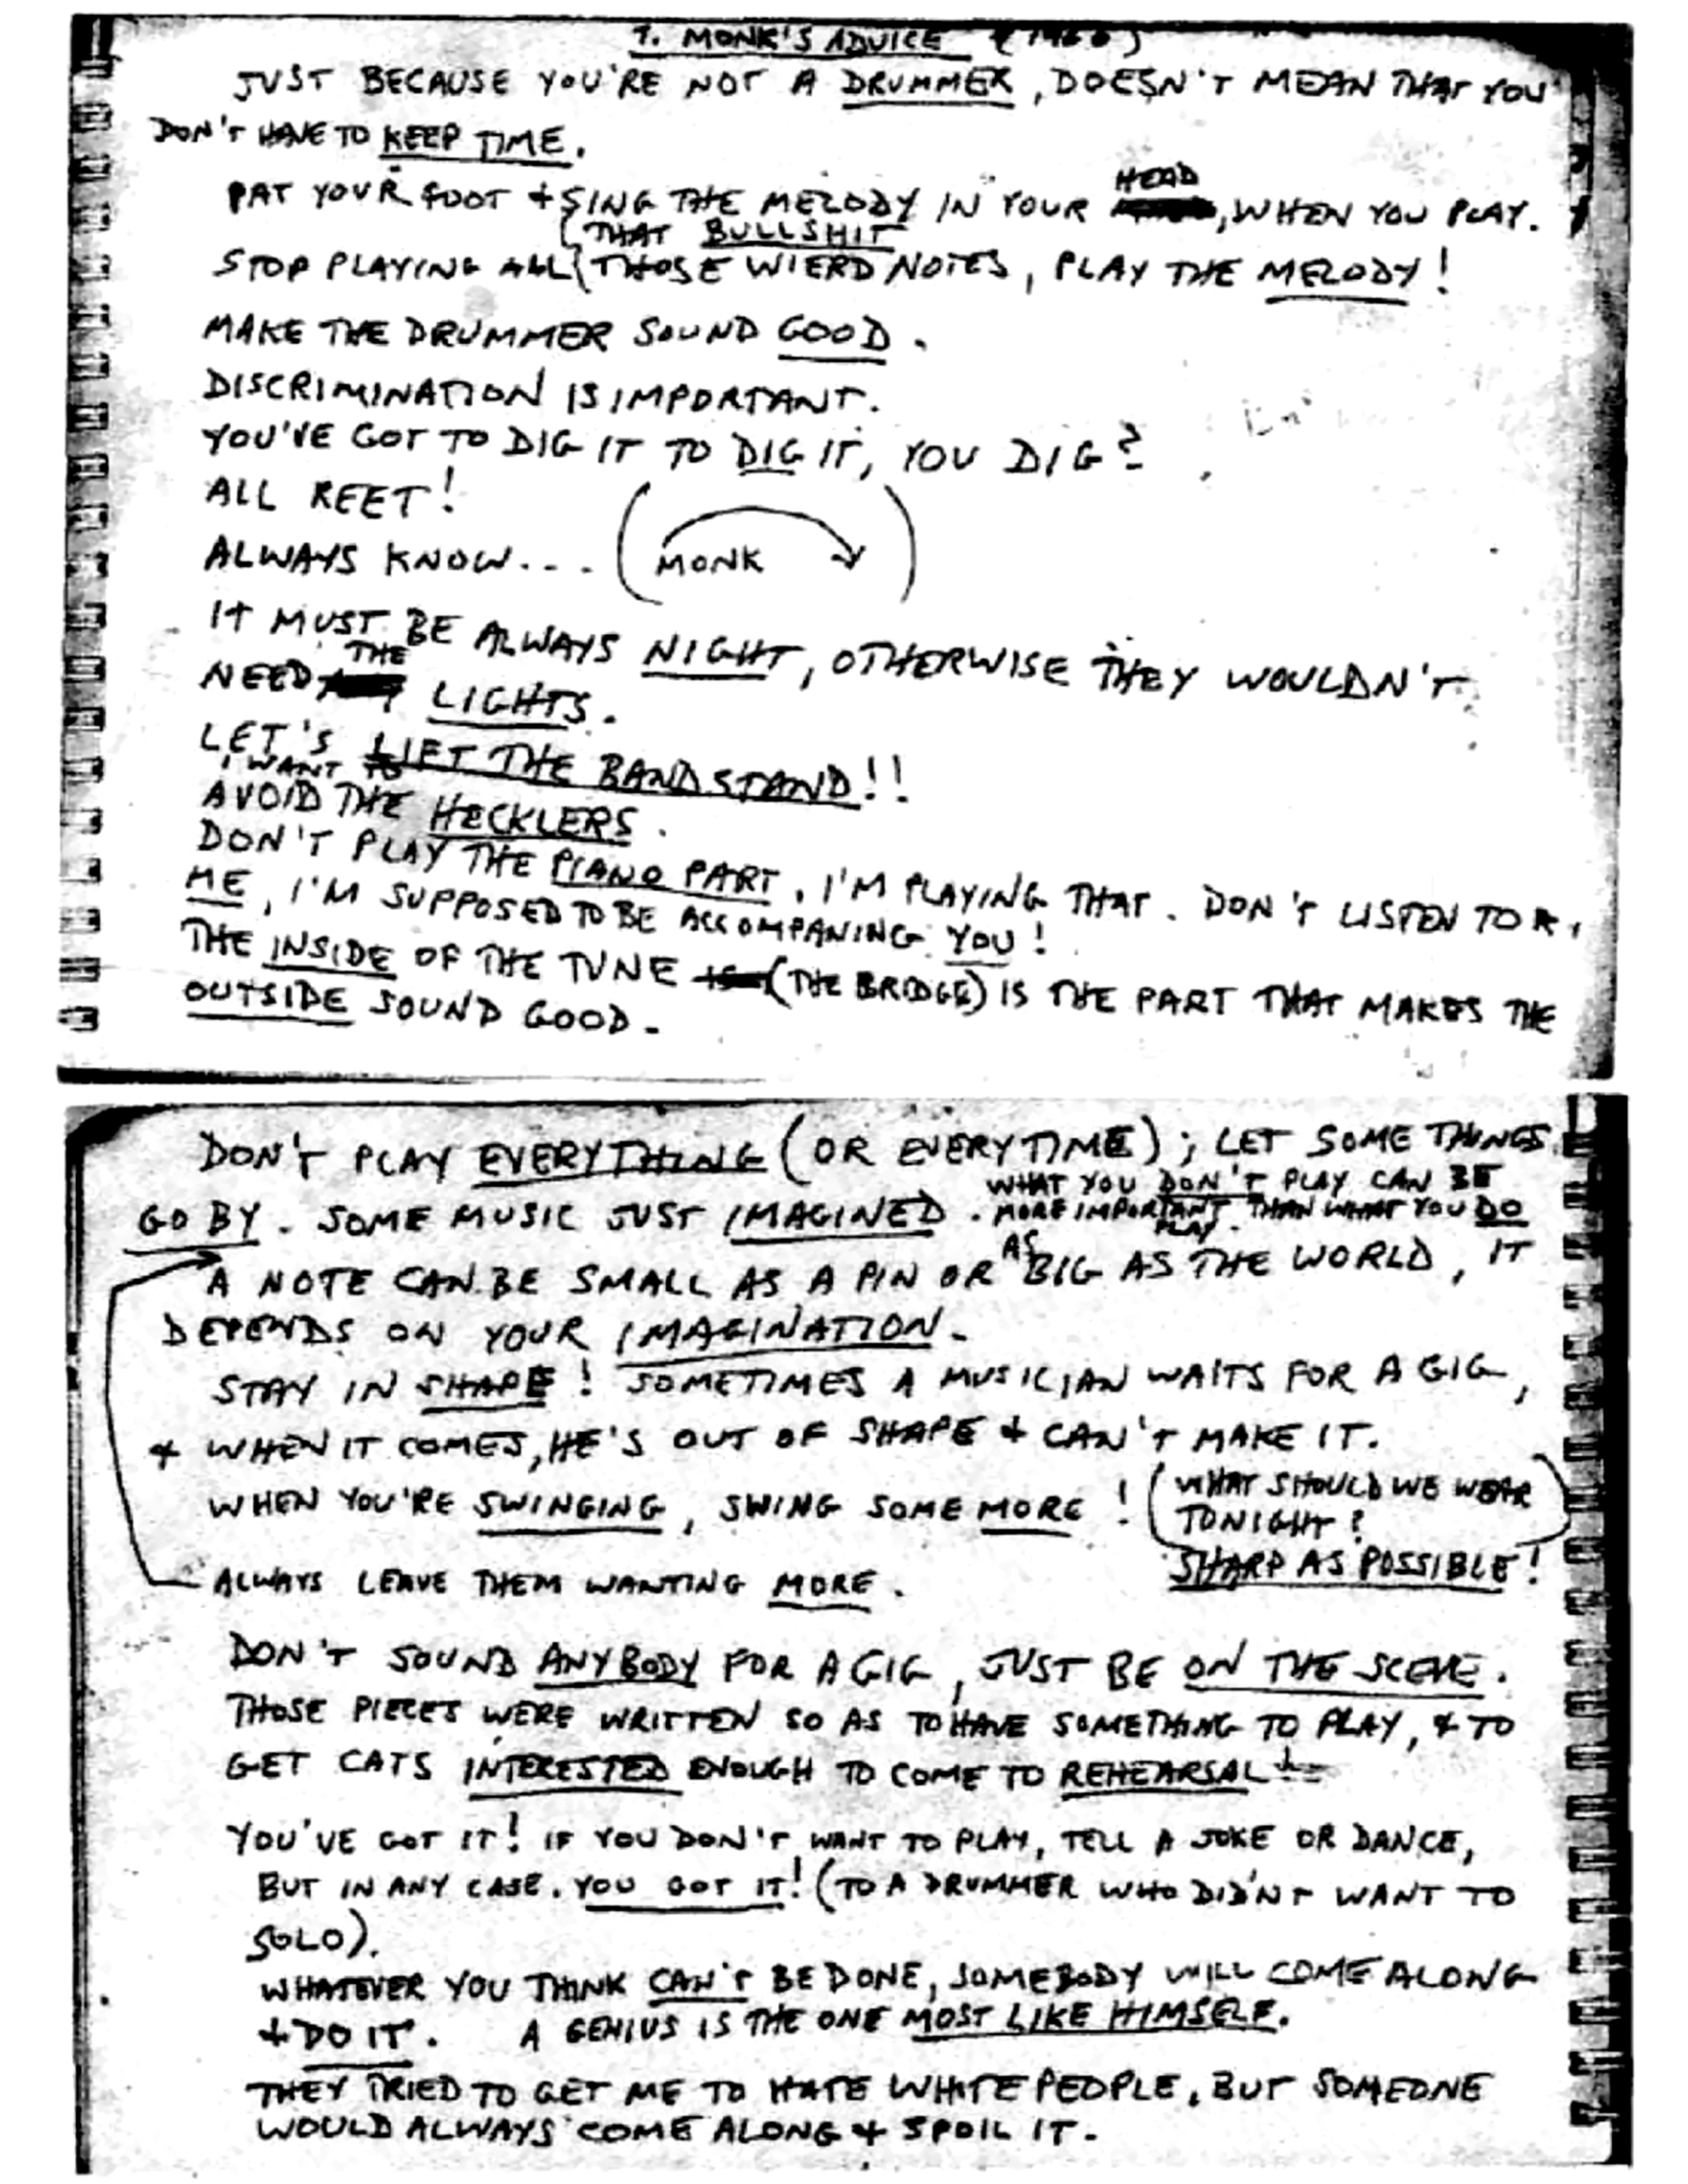 T. MONK'S ADVICE (1960)
JUST BECAUSE YOU'RE NOT A DRUMMER, DOESN'T MEAN THAT YOU
DON'T HAVE TO KEEP TIME.
HEAD
PAT YOUR FOOT + SING THE MELODY IN YOUR , WHEN YOU PLAY.
(THAT BULLSHIT
STOP PLAYING ALL (THOSE WIERD NOTES, PLAY THE MELODY!
MAKE THE DRUMMER SOUND GOOD.
DISCRIMINATION IS IMPORTANT.
YOU'VE GOT TO DIG IT TO DIG IT, YOU DIG?
ALL REET!
ALWAYS KNOW... (MONK)
IT MUST BE ALWAYS NIGHT, OTHERWISE THEY WOULDN'T
THE
NEED LIGHTS.
LET'S LIFT THE BANDSTAND!!
I WANT TO
AVOID THE HECKLERS.
DON'T PLAY THE PIANO PART, I'M PLAYING THAT. DON'T LISTEN TO
ME, I'M SUPPOSED TO BE ACCOMPANING YOU!
THE INSIDE OF THE TUNE (THE BRIDGE) IS THE PART THAT MAKES THE
OUTSIDE SOUND GOOD.
DON'T PLAY EVERYTHING (OR EVERYTIME); LET SOME THINGS
WHAT YOU DON'T PLAY CAN BE
GO BY. SOME MUSIC JUST IMAGINED. MORE IMPORTANT THAN WHAT YOU DO
PLAY.
AS
A NOTE CAN BE SMALL AS A PIN OR BIG AS THE WORLD, IT
DEPENDS ON YOUR IMAGINATION.
STAY IN SHAPE! SOMETIMES A MUSICIAN WAITS FOR A GIG,
+ WHEN IT COMES, HE'S OUT OF SHAPE + CAN'T MAKE IT.
WHEN YOU'RE SWINGING, SWING SOME MORE! (WHAT SHOULD WE WEAR
TONIGHT?)
SHARP AS POSSIBLE!
ALWAYS LEAVE THEM WANTING MORE.
DON'T SOUND ANYBODY FOR A GIG, JUST BE ON THE SCENE.
THOSE PIECES WERE WRITTEN SO AS TO HAVE SOMETHING TO PLAY, + TO
GET CATS INTERESTED ENOUGH TO COME TO REHEARSAL!
YOU'VE GOT IT! IF YOU DON'T WANT TO PLAY, TELL A JOKE OR DANCE,
BUT IN ANY CASE, YOU GOT IT! (TO A DRUMMER WHO DIDN'T WANT TO
SOLO).
WHATEVER YOU THINK CAN'T BE DONE, SOMEBODY WILL COME ALONG
+ DO IT. A GENIUS IS THE ONE MOST LIKE HIMSELF.
THEY TRIED TO GET ME TO HATE WHITE PEOPLE, BUT SOMEONE
WOULD ALWAYS COME ALONG + SPOIL IT.